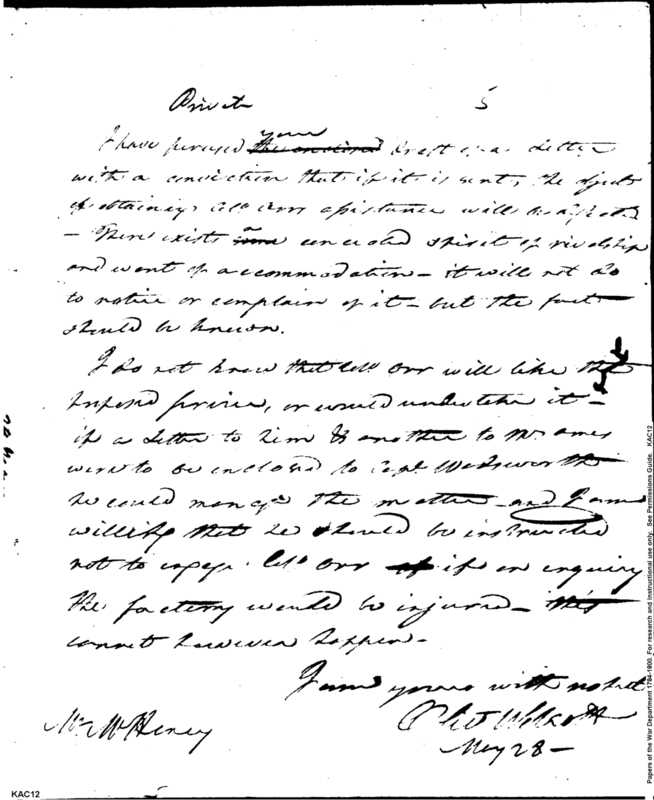 Private 5
your
I have perused the enclosed Draft of a Letter
with a conviction that if it is sent, the object
of obtaining Coll Orrs assistance will be
– There exists a concealed spirit of rivalship
and want of accommodation – it will not do
to notice or complain of it – but the fact
should be known.
I do not know that Coll Orr will like the
proposed service, or would undertake it –
if a Letter to him & another to Mr Ames
were to be enclosed to Capt Wadsworth
he could manage the matter – and I am
willing that he should be instructed
not to engage Coll Orr if if on enquiry
the factory would be injured – this
cannot however happen –
I am yours with respect
Oliv Wolcott
Mr McHenry
May 28 –
KAC12
Papers of the War Department 1784-1800. For research and instructional use only. See Permissions Guide. KAC12